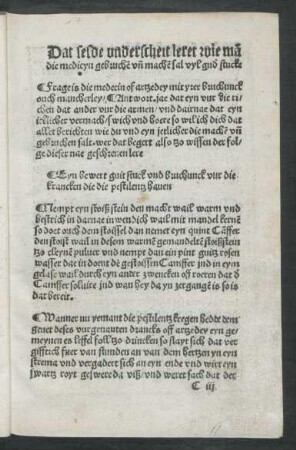 Dat seſde underſcheit leret wie mā
die medicyn gebruchē uñ machē ſal vyl gud ſtucke
¶ Frage is die medecin of artzedey mit yrer bruchunck
ouch mancherley / ¶ Antwort. jae dat eyn vur die ri-
chen dat ander vur die armen / und darnae dat eyn
itzlicher vermach / ſwich und hoere ſo wil ich dich dat
allet berichten wie du und eyn jetlicher die machē uñ
gebruchen ſalt. wer dat begert alſo tzo wiſſen der fol-
ge dieſer nae geſchreuen lere
¶ Eyn bewert guit ſtuck und bruchunck vur die
krancken die die peſtilentz hauen
¶ Nempt eyn ſtoiß ſtein den macht wail warm und
beſtrich in darnae inwendich wail mit mandel kernē
ſo doet ouch dem ſtoiſſel dan nemet eyn quint Cāffer
den ſtoiſt wail in deſom warmē gemandeltē ſtoißſtein
tzo cleynē puluer und nempt dan eyn pint guitz roſen
waſſer dat in doent dē geſtoiſſen Camffer und in eyn
gelaſe wail durch eyn ander zwencken off roeren dat d
Camffer ſoluire und wan hey da yn zergangē is ſo is
dat bereit.
¶ Wanner nu yemant die peſtilentz kregen hedde dem
geuet deſes vurgenanten drancks off artzedey eyn ge-
meynen es leffel foll tzo drincken ſo ſlayt ſich dat ver
gifftich fuer van ſtunden an van dem hertzen yn eyn
ſtrema und vergadert ſich an eyn ende und wirt eyn
ſwartz royt geſwere da viß / und weret ſach dat der
C iij